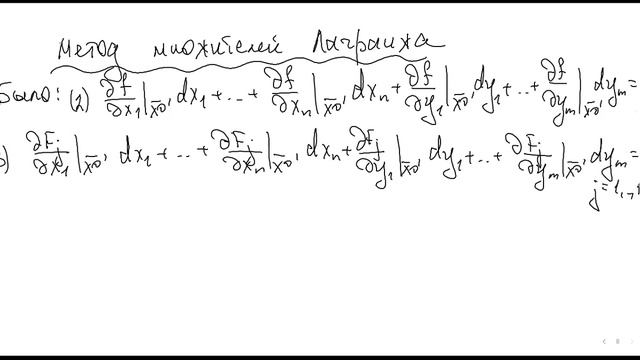 Метод множителей Лагранжа
было: (2) ∂f/∂x₁|x̄⁰, dx₁ + ... + ∂f/∂xₙ|x̄⁰, dxₙ + ∂f/∂y₁|x̄⁰, dy₁ + ... + ∂f/∂yₘ|x̄⁰, dyₘ =
) ∂Fⱼ/∂x₁|x̄⁰, dx₁ + ... + ∂Fⱼ/∂xₙ|x̄⁰, dxₙ + ∂Fⱼ/∂y₁|x̄⁰, dy₁ + ... + ∂Fⱼ/∂yₘ|x̄⁰, dyₘ =
j = 1, ...,